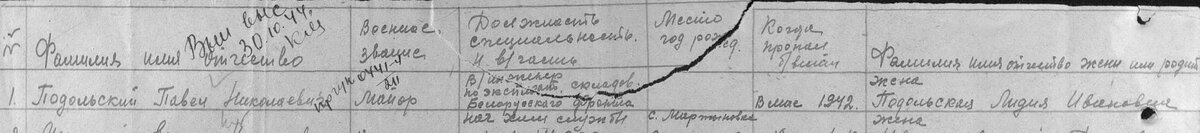 № Фамилия имя отчество Военное звание Должность специальность и в/часть Место год рожд. Когда пропал б/вести Фамилия имя отчество жены или родит
Вып выс
30.10.44г.
1. Подольский Павел Николаевич Майор в/инженер по эксплоат. складов Белорусского фронта В мае 1942. жена Подольская Лидия Ивановна
нач хим службы с. Мартыновка жена